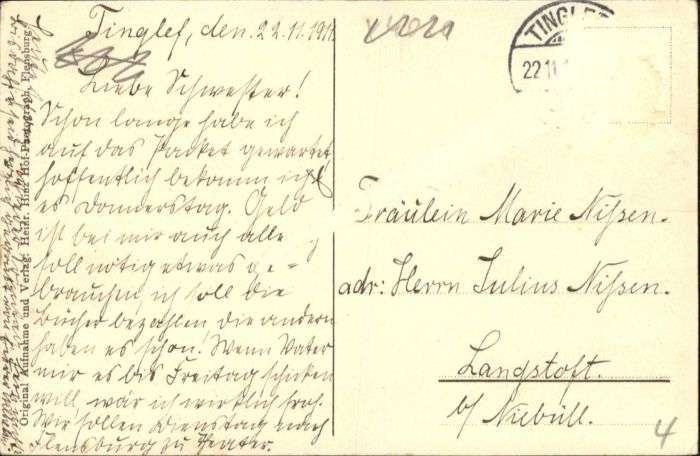 Tinglef, den 22.11.191
Liebe Schwester!
Schon lange habe ich
auf das Packet gewartet,
hoffentlich bekomm ich
es Donnerstag. Geld
ist bei mir auch alle
soll nötig etwas ge-
brauchen, ich soll die
Bücher bezahlen die andern
haben es schon! Wenn Vater
mir es bis Freitag schicken
will, wär ich wirklich froh.
Wir sollen Dienstag nach
Flensburg zu Theater.
Original Aufnahme und Verlag: Heinr. Hinz Hof-Photograph, Flensburg
TINGLEF
22.11.1
Fräulein Marie Nissen.
adr: Herrn Julius Nissen.
Langstoft.
b/ Niebüll.
4